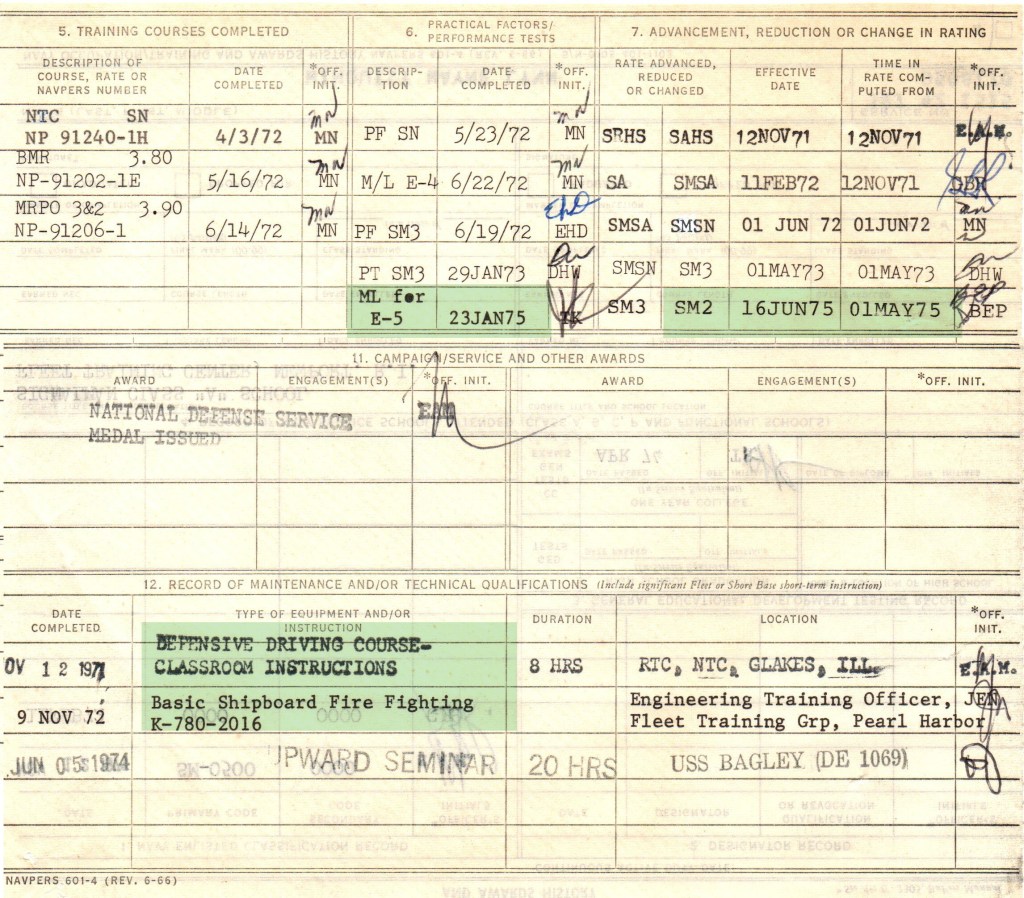 5. TRAINING COURSES COMPLETED
6. PRACTICAL FACTORS/ PERFORMANCE TESTS
7. ADVANCEMENT, REDUCTION OR CHANGE IN RATING
DESCRIPTION OF COURSE, RATE OR NAVPERS NUMBER
DATE COMPLETED
*OFF. INIT.
DESCRIP- TION
DATE COMPLETED
*OFF. INIT.
RATE ADVANCED, REDUCED OR CHANGED
EFFECTIVE DATE
TIME IN RATE COM- PUTED FROM
*OFF. INIT.
NTC SN
NP 91240-1H 4/3/72 MN PF SN 5/23/72 MN SRHS SAHS 12NOV71 12NOV71 E.A.M.
BMR 3.80
NP-91202-1E 5/16/72 MN M/L E-4 6/22/72 MN SA SMSA 11FEB72 12NOV71 GBR
MRPO 3&2 3.90
NP-91206-1 6/14/72 MN PF SM3 6/19/72 EHD SMSA SMSN 01 JUN 72 01JUN72 MN
PT SM3 29JAN73 DHW SMSN SM3 01MAY73 01MAY73 DHW
ML for
E-5 23JAN75 TK SM3 SM2 16JUN75 01MAY75 BEP
11. CAMPAIGN/SERVICE AND OTHER AWARDS
AWARD ENGAGEMENT(S) *OFF. INIT. AWARD ENGAGEMENT(S) *OFF. INIT.
NATIONAL DEFENSE SERVICE EAM
MEDAL ISSUED
12. RECORD OF MAINTENANCE AND/OR TECHNICAL QUALIFICATIONS (Include significant Fleet or Shore Base short-term instruction)
DATE COMPLETED
TYPE OF EQUIPMENT AND/OR INSTRUCTION
DURATION
LOCATION
*OFF. INIT.
DEFENSIVE DRIVING COURSE-
OV 12 1971 CLASSROOM INSTRUCTIONS 8 HRS RTC, NTC, GLAKES, ILL. E.A.M.
Basic Shipboard Fire Fighting Engineering Training Officer, JEN
9 NOV 72 K-780-2016 Fleet Training Grp, Pearl Harbor
JUN 05 1974 UPWARD SEMINAR 20 HRS USS BAGLEY (DE 1069)
NAVPERS 601-4 (REV. 6-66)